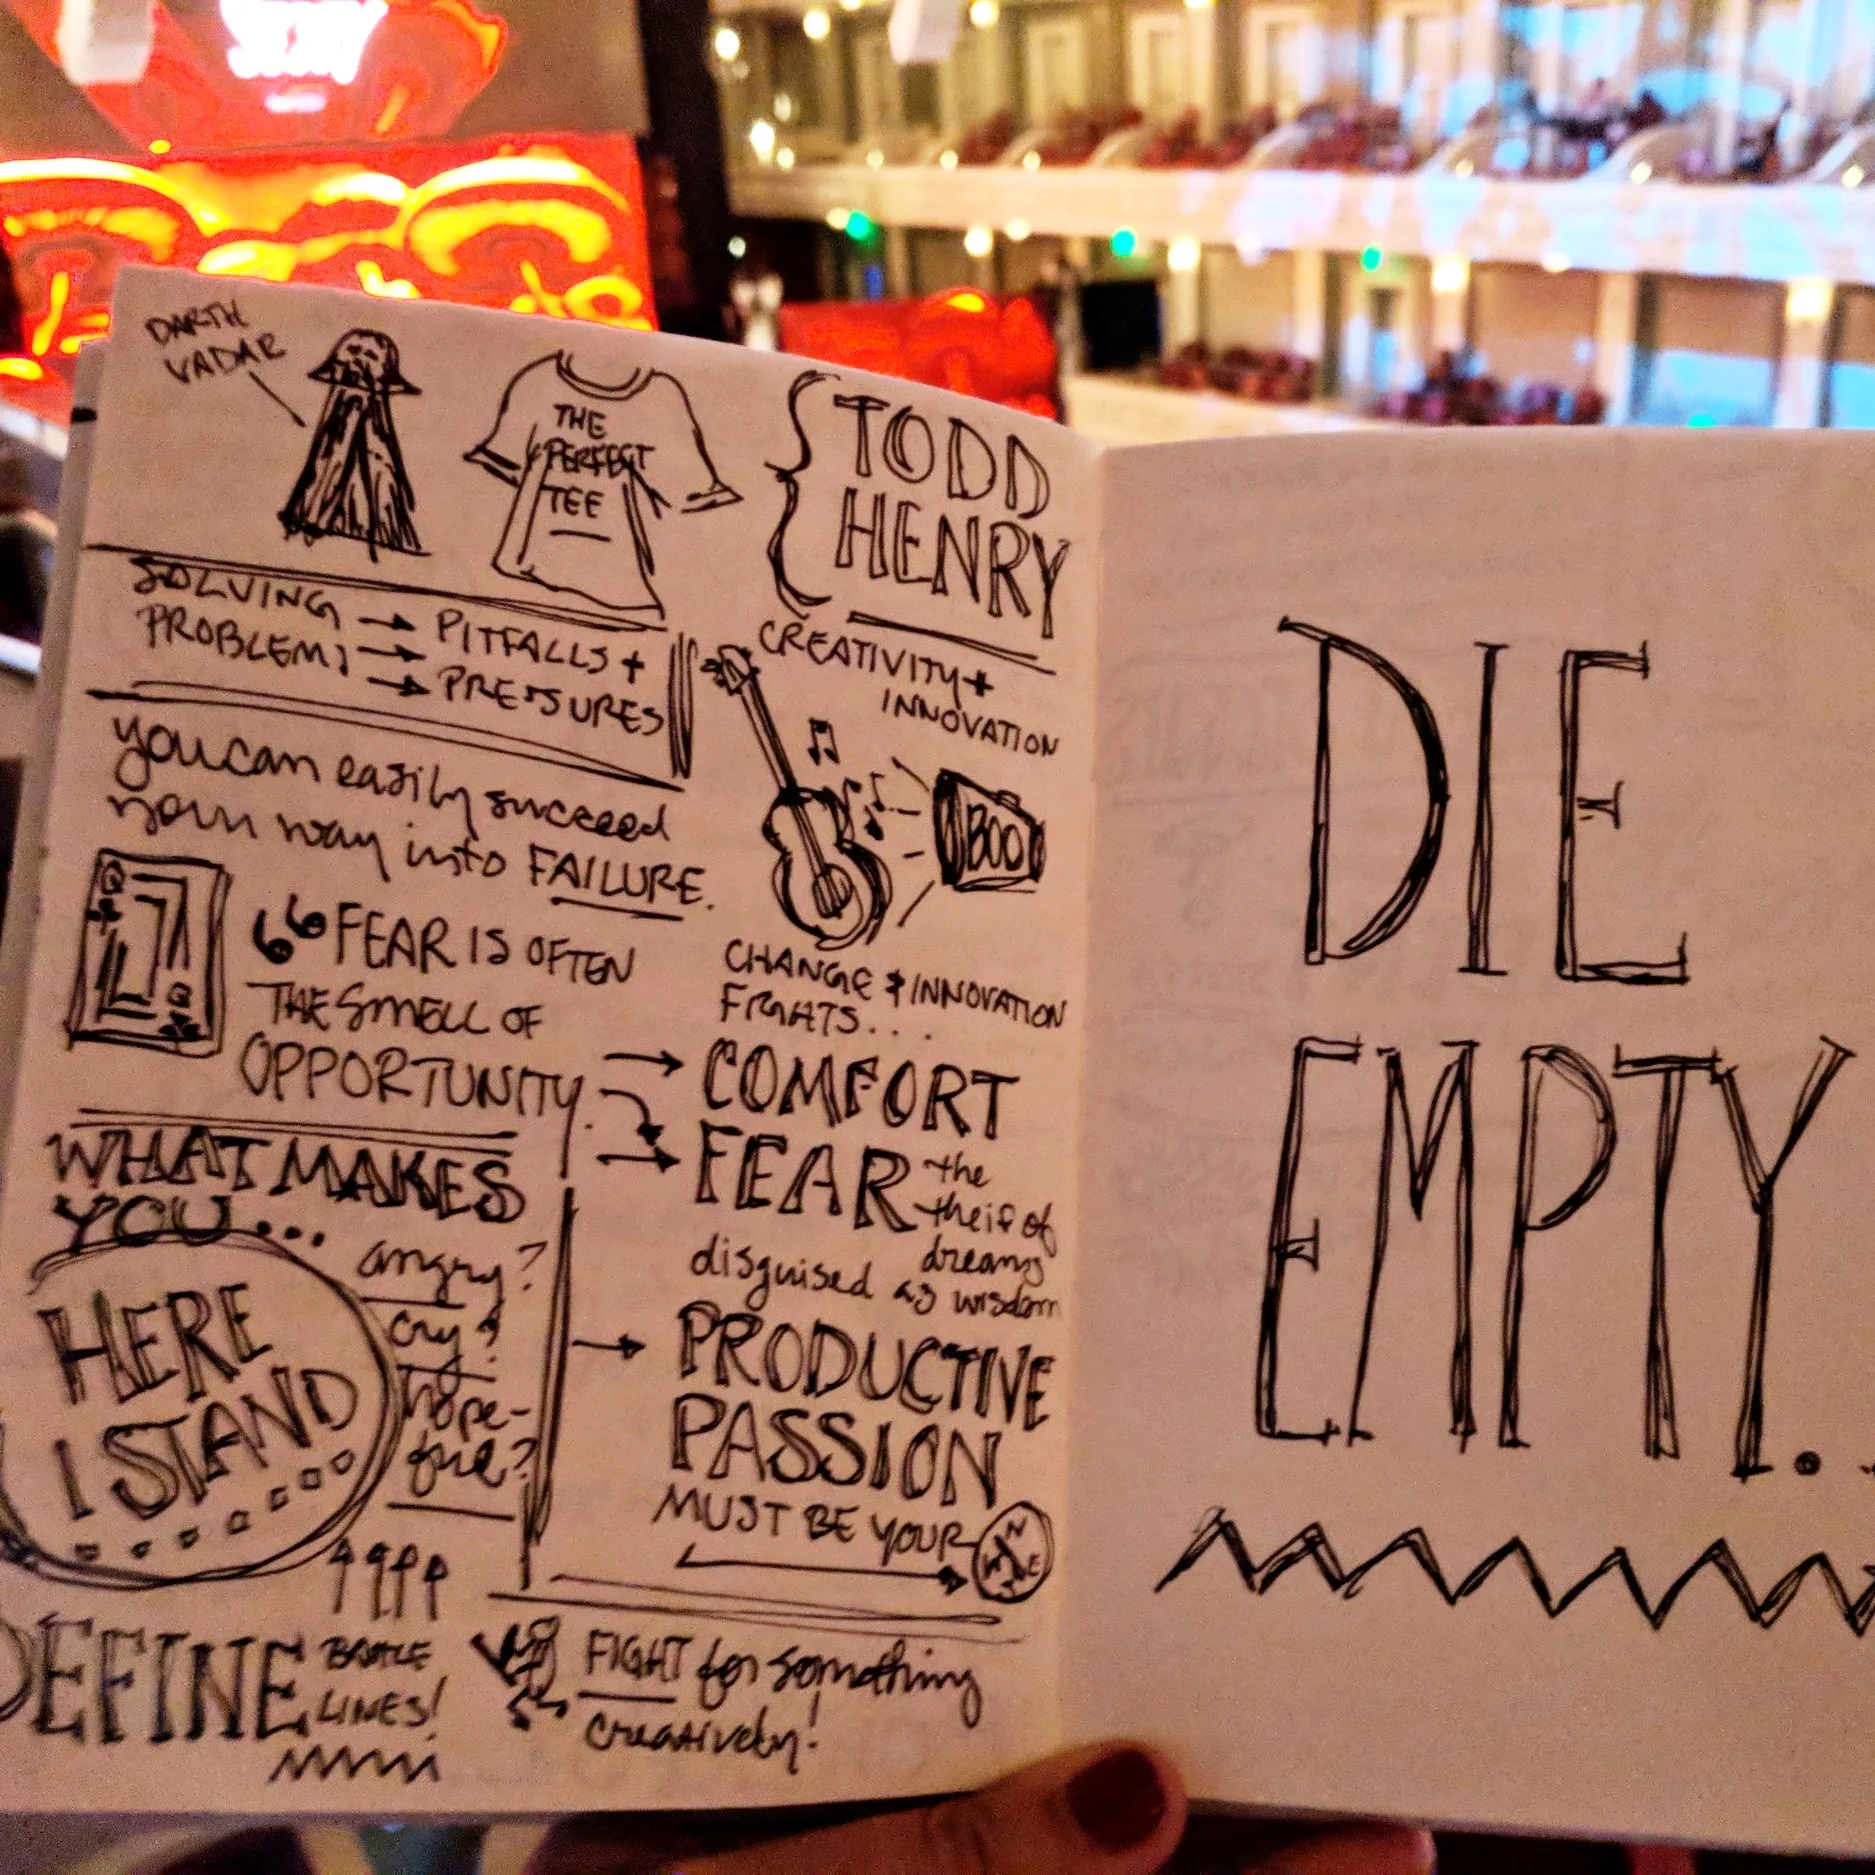 DARTH
VADAR
THE
PERFECT
TEE
TODD
HENRY
SOLVING
PROBLEMS
PITFALLS +
PRESSURES
CREATIVITY +
INNOVATION
you can easily succeed
your way into FAILURE.
BOO
Q
Q
“FEAR IS OFTEN
THE SMELL OF
OPPORTUNITY
CHANGE & INNOVATION
FIGHTS...
COMFORT
FEAR the
theif of
dreams
disguised as wisdom
WHAT MAKES
YOU...
angry?
cry?
hope-
ful?
HERE
I STAND
PRODUCTIVE
PASSION
MUST BE YOUR
N
W E
DEFINE BATTLE
LINES!
FIGHT for something
creatively!
DIE
EMPTY..